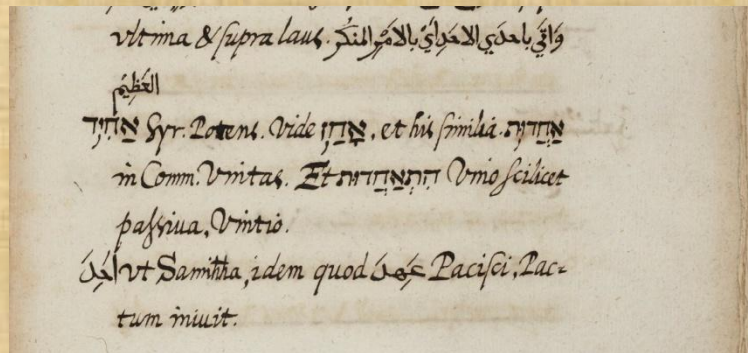 ultima & supra laus. وَاتَى باحدى الاحداي بالامر المنكر
العَظِيم
אַחִיד Syr. Potens. Vide אָחַז, et his similia. אַחֲדוּת
in Comm. Vnitas. Et הִתְאַחֲדוּת Vnio scilicet
passiua, Vnitio.
ut Samihha, idem quod عَهِدَ Pacisci, Pac-
tum iniuit.